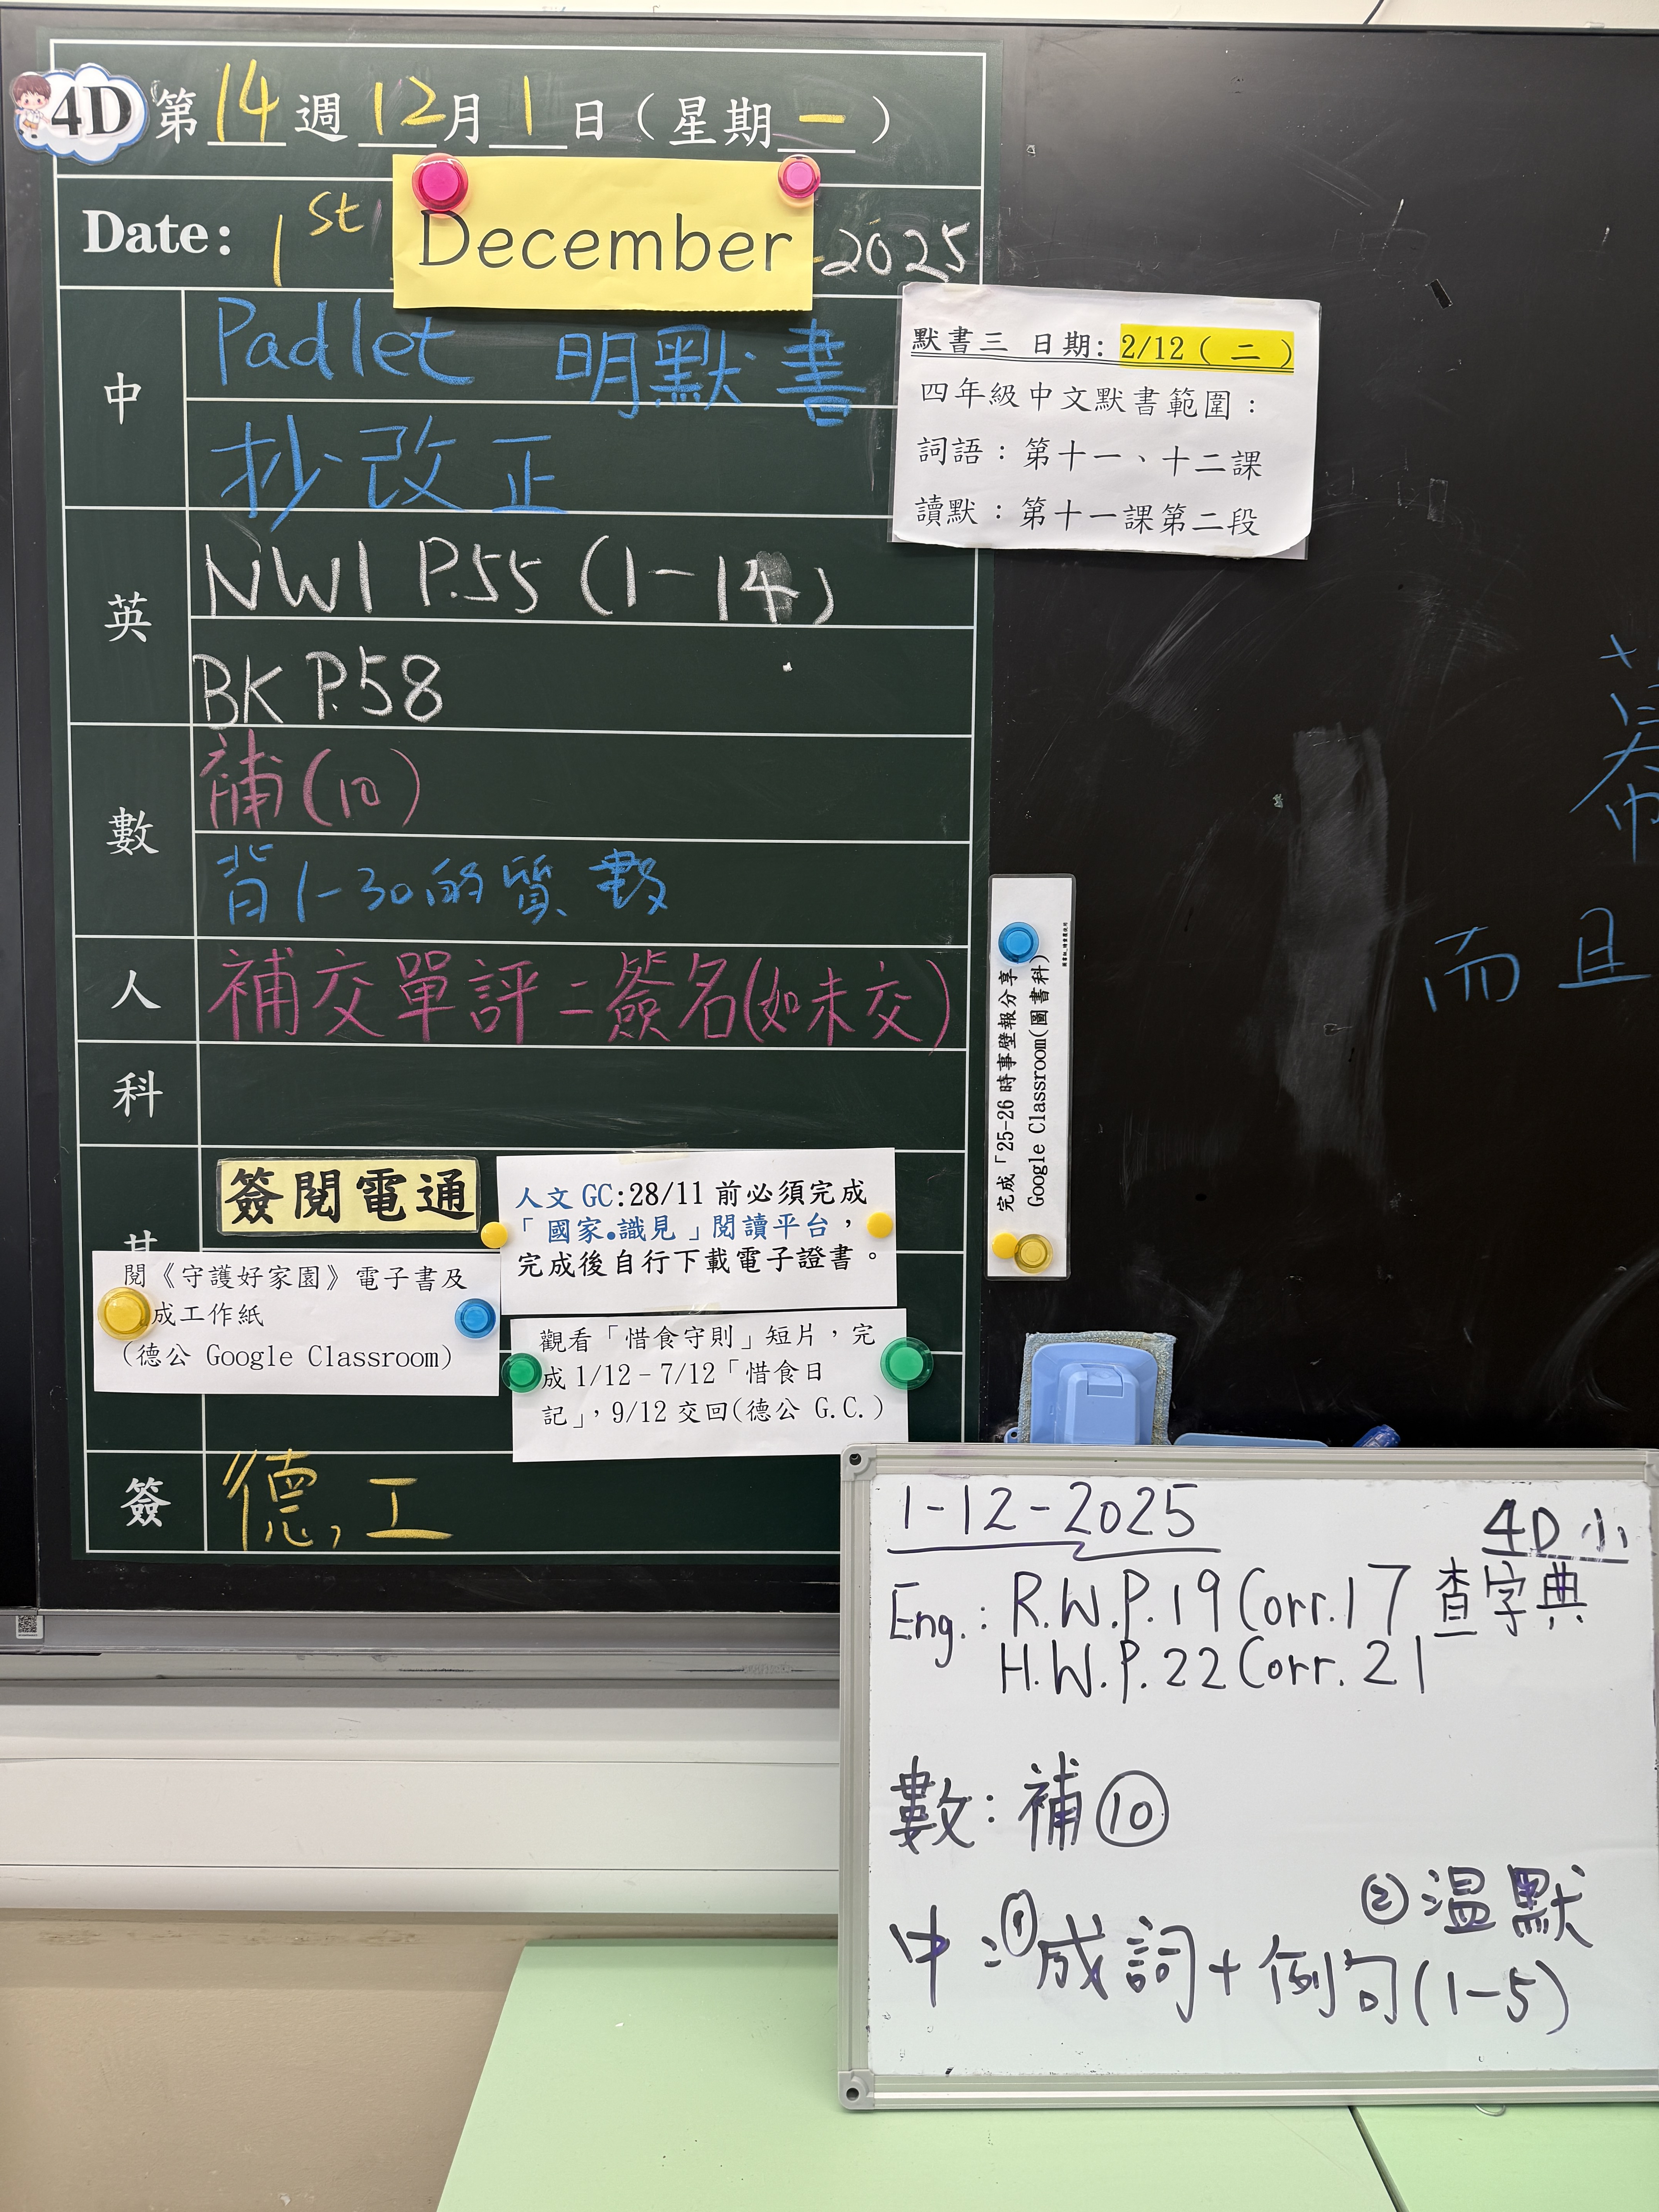 4D 第 14 週 12 月 1 日（星期 一 ）
Date: 1st December 2025
中
Padlet 明默書
抄改正
英
NW1 P.55 (1-14)
BK P.58
數
補(10)
背1-30的質數
人
補交單評二簽名(如未交)
科
簽閱電通
人文 GC:28/11 前必須完成
「國家●識見」閱讀平台，
完成後自行下載電子證書。
閱《守護好家園》電子書及
成工作紙
(德公 Google Classroom)
觀看「惜食守則」短片，完
成 1/12–7/12「惜食日
記」，9/12 交回(德公 G.C.)
簽
德, 工
默書三 日期: 2/12 ( 二 )
四年級中文默書範圍：
詞語：第十一、十二課
讀默：第十一課第二段
完成「25-26 時事壁報分享
Google Classroom(圖書科)
而且
1-12-2025
4D小
Eng.: R.W.P.19 Corr.17 查字典
H.W.P.22 Corr.21
數: 補⑩
中:①成詞+例句(1-5)
②温默